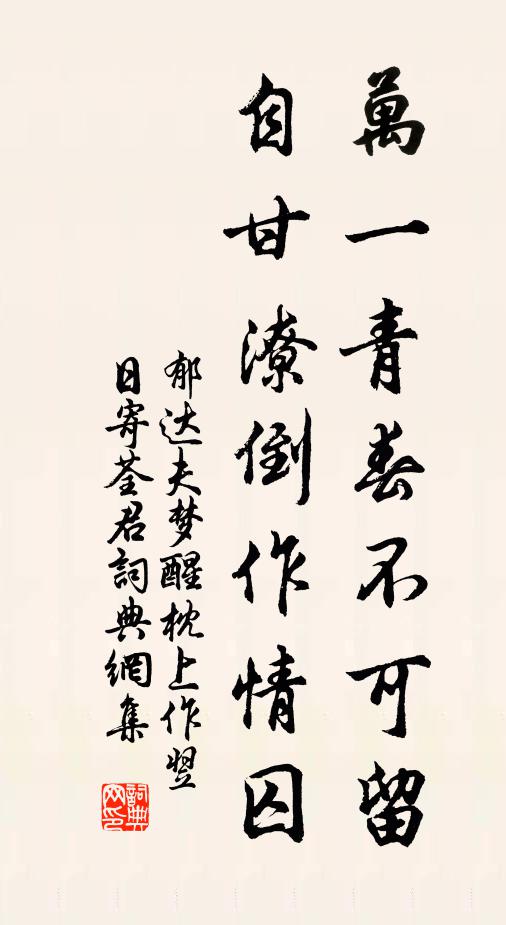 萬一青春不可留
自甘潦倒作情囚
郁达夫梦醒枕上作翌
日寄荃君詞典網集
詞典
网印